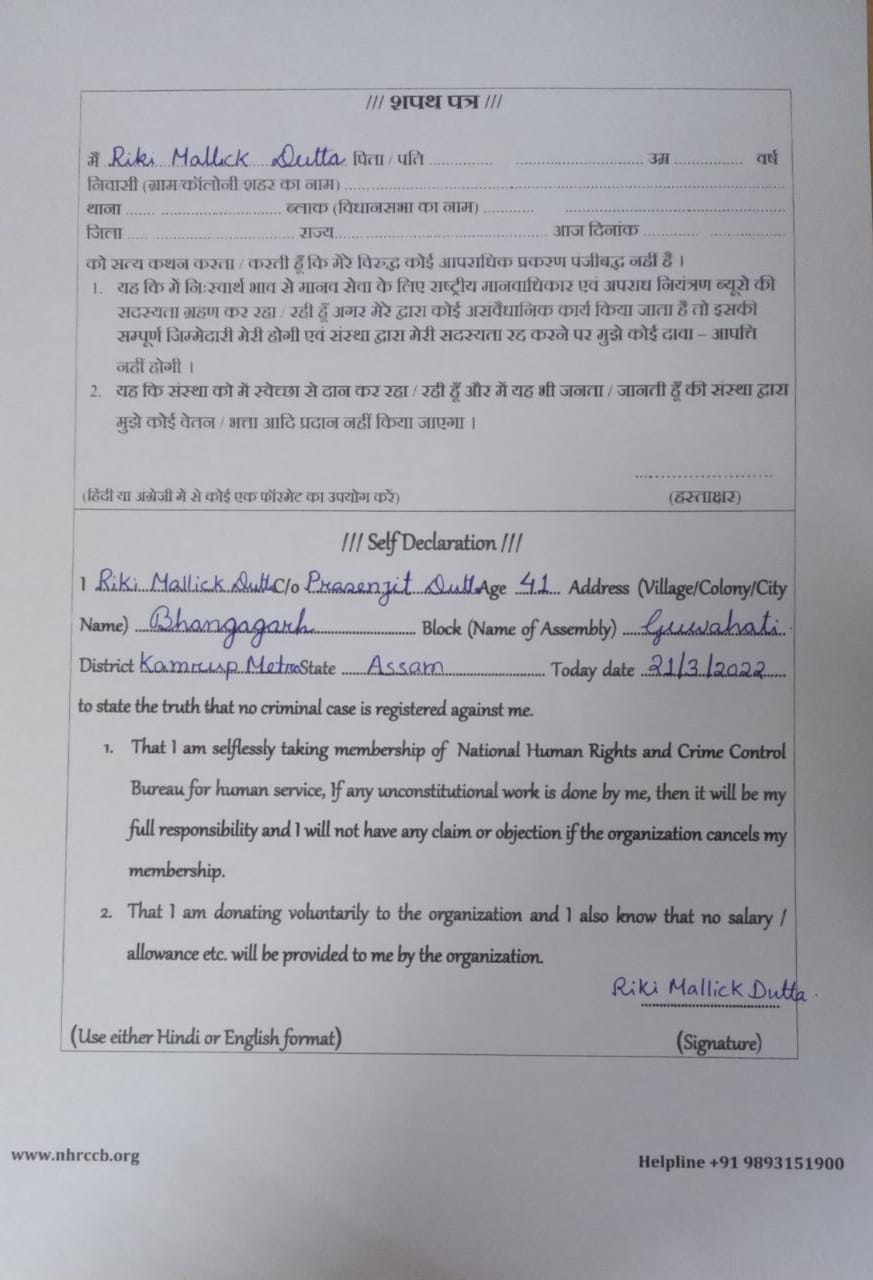 /// शपथ पत्र ///
मैं Riki Mallick Dutta पिता / पति .............. .............................. उम्र ................ वर्ष
निवासी (ग्राम/कॉलोनी शहर का नाम) ..............................
थाना ....... ............................ ब्लाक (विधानसभा का नाम) ............ ..............................
जिला ..... .............................. राज्य.............................. आज दिनांक ............ ..................
को सत्य कथन करता / करती हूँ कि मेरे विरुद्ध कोई आपराधिक प्रकरण पजीबद्ध नहीं है ।
1. यह कि में निःस्वार्थ भाव से मानव सेवा के लिए राष्ट्रीय मानवाधिकार एवं अपराध नियंत्रण ब्यूरो की
सदस्यता ग्रहण कर रहा / रही हूँ अगर मेरे द्वारा कोई असंवैधानिक कार्य किया जाता है तो इसकी
सम्पूर्ण जिम्मेदारी मेरी होगी एवं संस्था द्वारा मेरी सदस्यता रद्द करने पर मुझे कोई दावा – आपत्ति
नहीं होगी ।
2. यह कि संस्था को में स्वेच्छा से दान कर रहा / रही हूँ और में यह भी जनता / जानती हूँ की संस्था द्वारा
मुझे कोई वेतन / भत्ता आदि प्रदान नहीं किया जाएगा ।
(हिंदी या अंग्रेजी में से कोई एक फॉरमेट का उपयोग करें) (हस्ताक्षर)
/// Self Declaration ///
I Riki Mallick Dutt C/o Prasenjit Dutt Age 41 Address (Village/Colony/City
Name) Bhangagarh Block (Name of Assembly) Guwahati
District Kamrup Metro State Assam Today date 21/3/2022
to state the truth that no criminal case is registered against me.
1. That I am selflessly taking membership of National Human Rights and Crime Control
Bureau for human service, If any unconstitutional work is done by me, then it will be my
full responsibility and I will not have any claim or objection if the organization cancels my
membership.
2. That I am donating voluntarily to the organization and I also know that no salary /
allowance etc. will be provided to me by the organization.
Riki Mallick Dutta.
(Use either Hindi or English format) (Signature)
www.nhrccb.org Helpline +91 9893151900